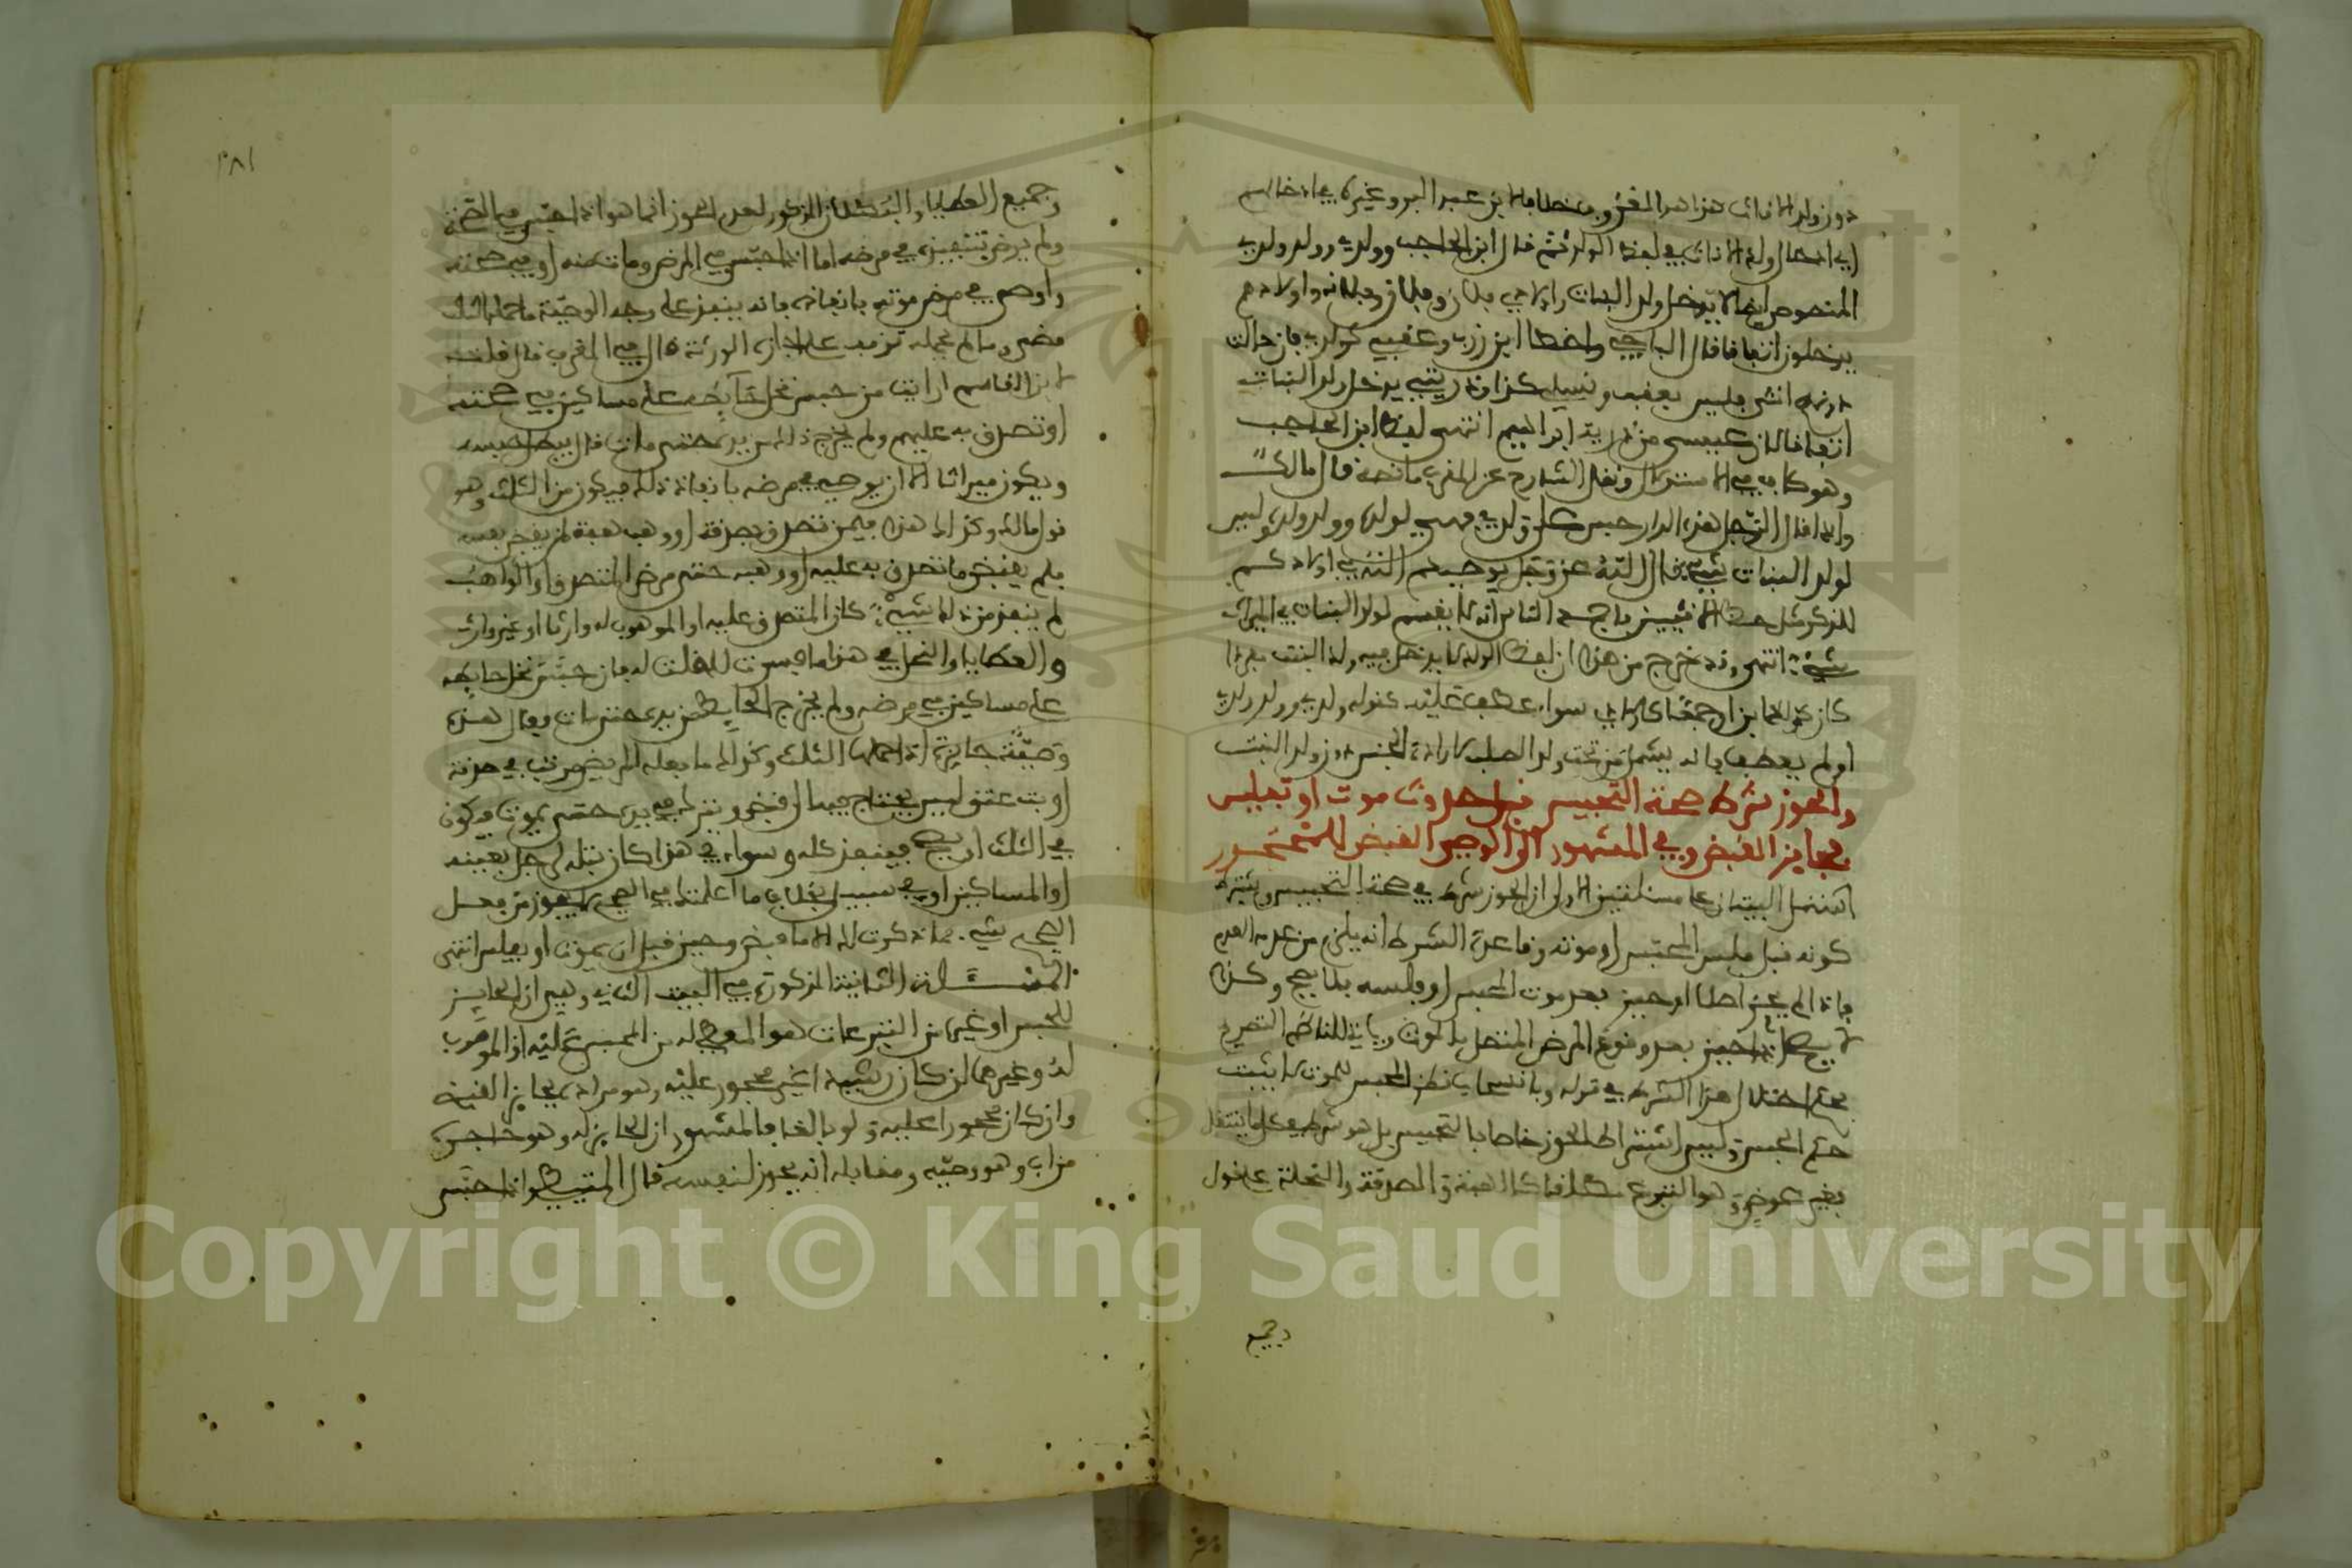 دون ولد الاناث هذا هو المعروف خلافا لابن عبد البر وغيره في ادخالهم
اي ادخال ولد الاناث في لفظ الولد ثم قال ابن الحاجب وولدي وولد ولدي
المنصوص ايضا لا يدخل ولد البنات واولادي فلان وفلان وفلانة واولادهم
يدخلون اتفاقا قال الباجي واخطا ابن زرب وعقبي كولدي فان حالت
دونه انثى فليس بعقب ونسلي كذا وذريتي يدخل ولد البنات
اتفاقا لان عيسى من ذرية ابراهيم انتهى لفظ ابن الحاجب
وهو كاف في الاستدلال ونقل الشارح عن المقرب ما نصه قال مالك
واذا قال الرجل هذه الدار حبس على ولدي فهي لولده وولد ولده وليس
لولد البنات شيء قال الله عز وجل يوصيكم الله في اولادكم
للذكر مثل حظ الانثيين فاجمع الناس انه لا يقسم لولد البنات في الميراث
شيء انتهى وقد خرج من هذا ان لفظ الولد لا يدخل فيه ولد البنت مفردا
كان كولد فلان او جمعا كاولادي سواء عطف عليه كقوله ولدي وولد ولدي
او لم يعطف فانه يشمل من تحت ولد الصلب لارادة الجنس دون ولد البنت
والحوز شرط صحة التحبيس قبل حدوث موت او تفليس
لجايز القبض وفي المشهور الى الوصي القبض للمحجور
اشتمل البيتان على مسئلتين الاولى ان الحوز شرط في صحة التحبيس ويشترط
كونه قبل فلس المحبس او موته وقاعدة الشرط انه يلزم من عدمه العدم
فاذا لم يحز اصلا او حيز بعد موت المحبس او فلسه فلا يصح وكذا
لا يصح اذا حيز بعد وقوع المرض المتصل بالموت وياتي للناظم التصريح
بحكم اختلال هذا الشرط في قوله وبانسحاب نظر المحبس للموت لا يثبت
حكم الحبس وليس اشتراط الحوز خاصا بالتحبيس بل هو شرط في كل ما ينتقل
بغير عوض وهو التبرع مطلقا كالهبة والصدقة والنحلة على قول
وجميع
٣٨١
وجميع العطايا والبطلان المذكور لعدم الحوز انما هو اذا حبس في الصحة
ولم يوص بتنفيذه في مرضه اما اذا حبس في المرض ومات منه او في صحته
واوصى في مرض موته بانفاذه فانه ينفذ على وجه الوصية ما حمله الثلث
مضى وما لم يحمله توقف على اجازة الورثة قال في المقرب قال قلت
لابن القاسم ارايت من حبس نخل حايطه على مساكين في صحته
او تصدق به عليهم ولم يخرج ذلك من يده حتى مات قال يبطل حبسه
ويكون ميراثا الا ان يوصي في مرضه بانفاذ ذلك فيكون من الثلث وهو
قول مالك وكذا هذا فيمن تصدق بصدقة او وهب هبة لمن يقبض لنفسه
فلم يقبض ما تصدق به عليه او وهبه حتى مرض المتصدق او الواهب
لم ينفذ من ذلك شيء كان المتصدق عليه او الموهوب له وارثا او غير وارث
والعطايا والنحل في هذا ما فسرت لك قلت له فان حبس نخل حايطه
على مساكين في مرضه ولم يخرج الحايط من يده حتى مات فقال هذه
وصية جايزة اذا حملها الثلث وكذلك ما فعله المريض في مرضه من صدقة
او بت عتق ليس يحتاج فيها الى قبض ويترك في يده حتى يموت فيكون
في الثلث او يصح فينفذ كله وسواء في هذا كان بتله لرجل بعينه
او المساكين او في سبيل الله بخلاف ما اعلمتك في الصحيح لا يجوز من فعل
الصحيح شيء مما ذكرت لك الا ما قبض وحيز قبل ان يموت او يفلس انتهى
المسئلة الثانية المذكورة في البيت الثاني وهي ان الحايز
للحبس او غيره من التبرعات هو المعطى له من المحبس عليه او الموهوب
له وغيرهما ان كان رشيدا غير محجور عليه وهو مراده بجايز القبض
وان كان محجورا عليه ولو بالغا فالمشهور ان الحايز له وهو حاجره
من اب وهو وصيه ومقابله انه يحوز لنفسه قال المتيطي واذا حبس